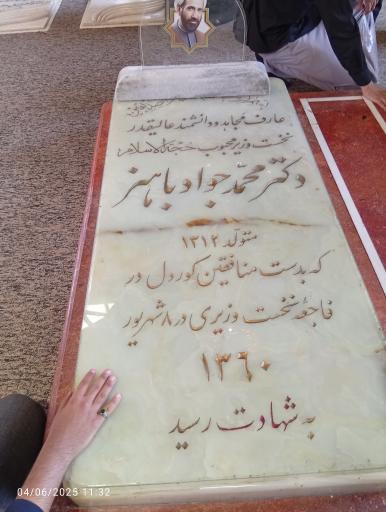 عارف مجاهد و دانشمند عالیقدر
نخست وزیر محبوب حجت الاسلام
دکتر محمد جواد باهنر
متولد ۱۳۱۲
که بدست منافقین کوردل در
فاجعه نخست وزیری در ۸ شهریور
۱۳۶۰
به شهادت رسید
04/06/2025 11:32